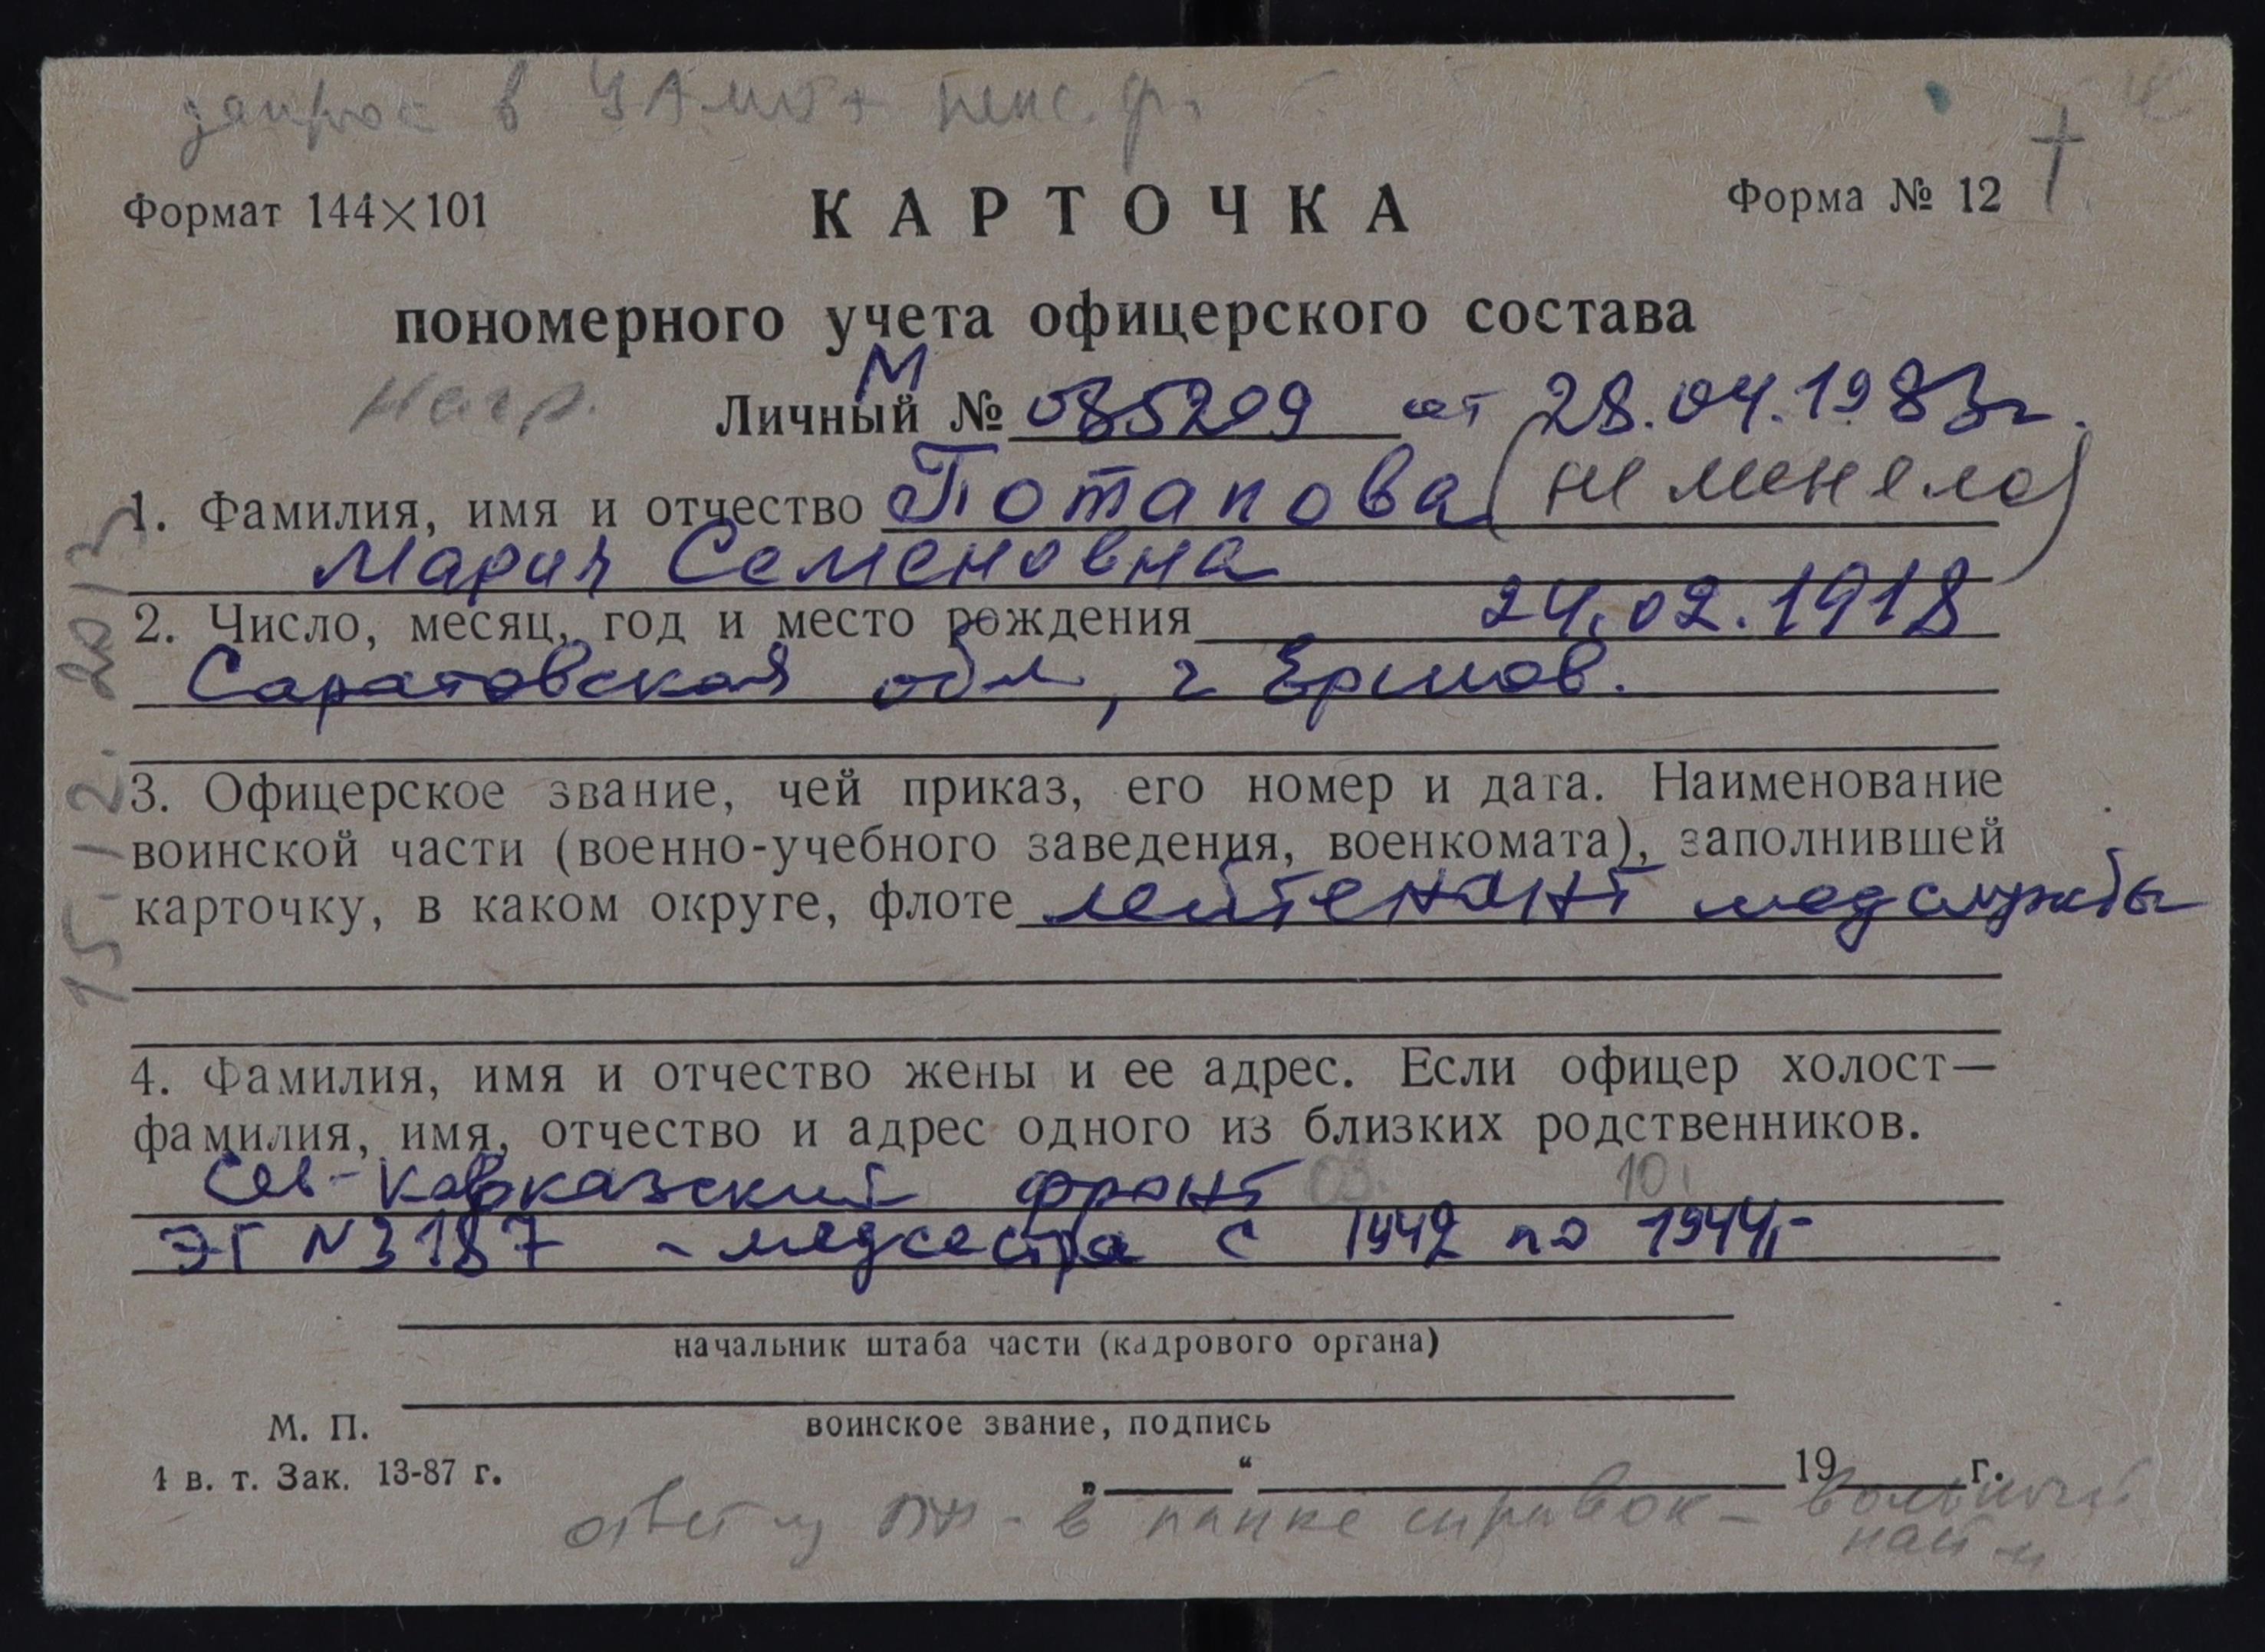 запрос в ЦАМО + пенс. ф.
Формат 144×101
Форма № 12
КАРТОЧКА
пономерного учета офицерского состава
нагр.
М
Личный № 085209 от 28.04.1983г.
1. Фамилия, имя и отчество Потапова (не меняла)
Мария Семеновна
2. Число, месяц, год и место рождения 24.02.1918
Саратовская обл, г Ершов.
3. Офицерское звание, чей приказ, его номер и дата. Наименование
воинской части (военно-учебного заведения, военкомата), заполнившей
карточку, в каком округе, флоте лейтенант медслужбы
4. Фамилия, имя и отчество жены и ее адрес. Если офицер холост—
фамилия, имя, отчество и адрес одного из близких родственников.
Сев-Кавказский фронт 03. 10.
ЭГ N 3187 - медсестра с 1942 по 1944г-
начальник штаба части (кадрового органа)
воинское звание, подпись
М. П.
4 в. т. Зак. 13-87 г.
„ “ 19 г.
ответ из - в папке справок -
15.12.2013